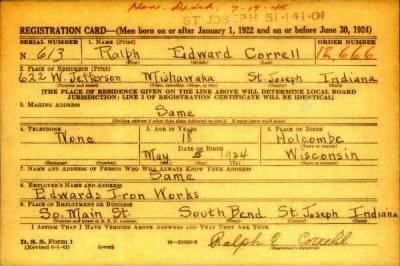 Hon. Disch. 7-19-45
ST JOSEPH 51-141-01
REGISTRATION CARD—(Men born on or after January 1, 1922 and on or before June 30, 1924)
SERIAL NUMBER 1. NAME (Print) ORDER NUMBER
N 613 Ralph Edward Correll 12,666
(First) (Middle) (Last)
2. PLACE OF RESIDENCE (Print)
622 W. Jefferson Mishawaka St. Joseph Indiana
(Number and street) (Town, township, village, or city) (County) (State)
[THE PLACE OF RESIDENCE GIVEN ON THE LINE ABOVE WILL DETERMINE LOCAL BOARD
JURISDICTION; LINE 2 OF REGISTRATION CERTIFICATE WILL BE IDENTICAL]
3. MAILING ADDRESS
Same
(Mailing address if other than place indicated on line 2. If same insert word same)
4. TELEPHONE 5. AGE IN YEARS 6. PLACE OF BIRTH
None 18 Holcombe
DATE OF BIRTH (Town or county)
May 5 1924 Wisconsin
(Mo.) (Day) (Yr.) (State or country)
7. NAME AND ADDRESS OF PERSON WHO WILL ALWAYS KNOW YOUR ADDRESS
Same
8. EMPLOYER'S NAME AND ADDRESS
Edwards Iron Works
9. PLACE OF EMPLOYMENT OR BUSINESS
So. Main St. South Bend St. Joseph Indiana
(Town) (County) (State)
I AFFIRM THAT I HAVE VERIFIED ABOVE ANSWERS AND THAT THEY ARE TRUE.
D. S. S. Form 1
Ralph E Correll
(Registrant's signature)